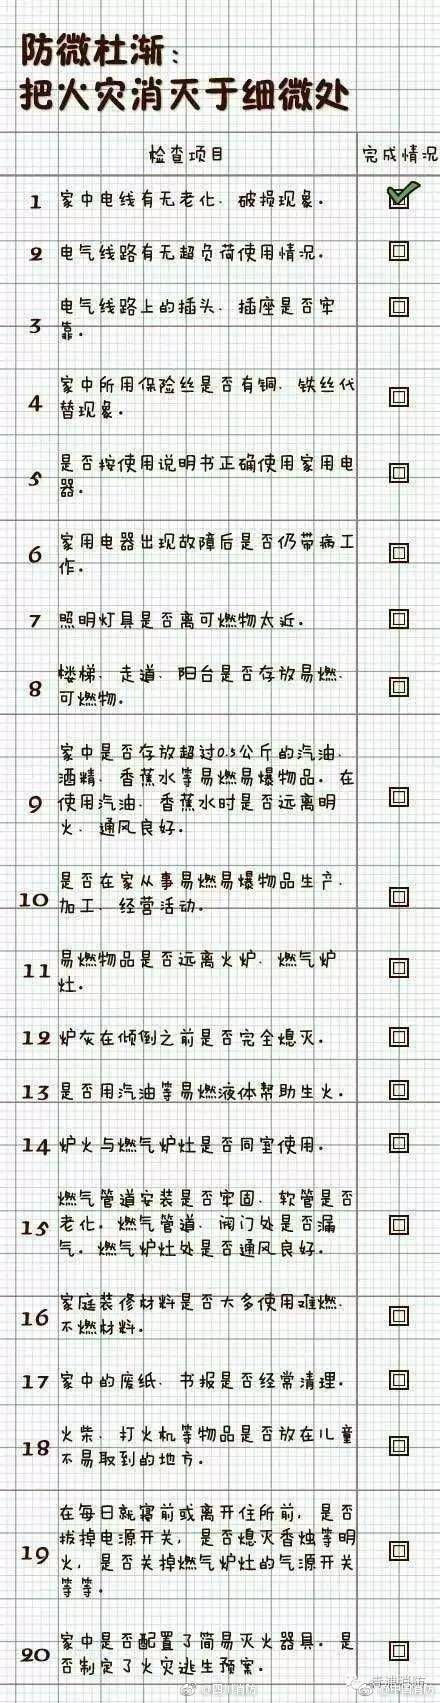 防微杜渐：
把火灾消灭于细微处
检查项目 完成情况
1 家中电线有无老化、破损现象。
2 电气线路有无超负荷使用情况。
电气线路上的插头、插座是否牢
3 靠。
家中所用保险丝是否有铜、铁丝代
4 替现象。
是否按使用说明书正确使用家用电
5 器。
家用电器出现故障后是否仍带病工
6 作。
7 照明灯具是否离可燃物太近。
楼梯、走道、阳台是否存放易燃、
8 可燃物。
家中是否存放超过0.5公斤的汽油、
酒精、香蕉水等易燃易爆物品。在
9 使用汽油、香蕉水时是否远离明
火、通风良好。
是否在家从事易燃易爆物品生产、
10 加工、经营活动。
易燃物品是否远离火炉、燃气炉
11 灶。
12 炉灰在倾倒之前是否完全熄灭。
13 是否用汽油等易燃液体帮助生火。
14 炉火与燃气炉灶是否同室使用。
燃气管道安装是否牢固、软管是否
15 老化。燃气管道、阀门处是否漏
气。燃气炉灶处是否通风良好。
家庭装修材料是否大多使用难燃、
16 不燃材料。
17 家中的废纸、书报是否经常清理。
火柴、打火机等物品是否放在儿童
18 不易取到的地方。
在每日就寝前或离开住所前，是否
拔掉电源开关，是否熄灭香烛等明
19 火，是否关掉燃气炉灶的气源开关
等等。
家中是否配置了简易灭火器具。是
20 否制定了火灾逃生预案。